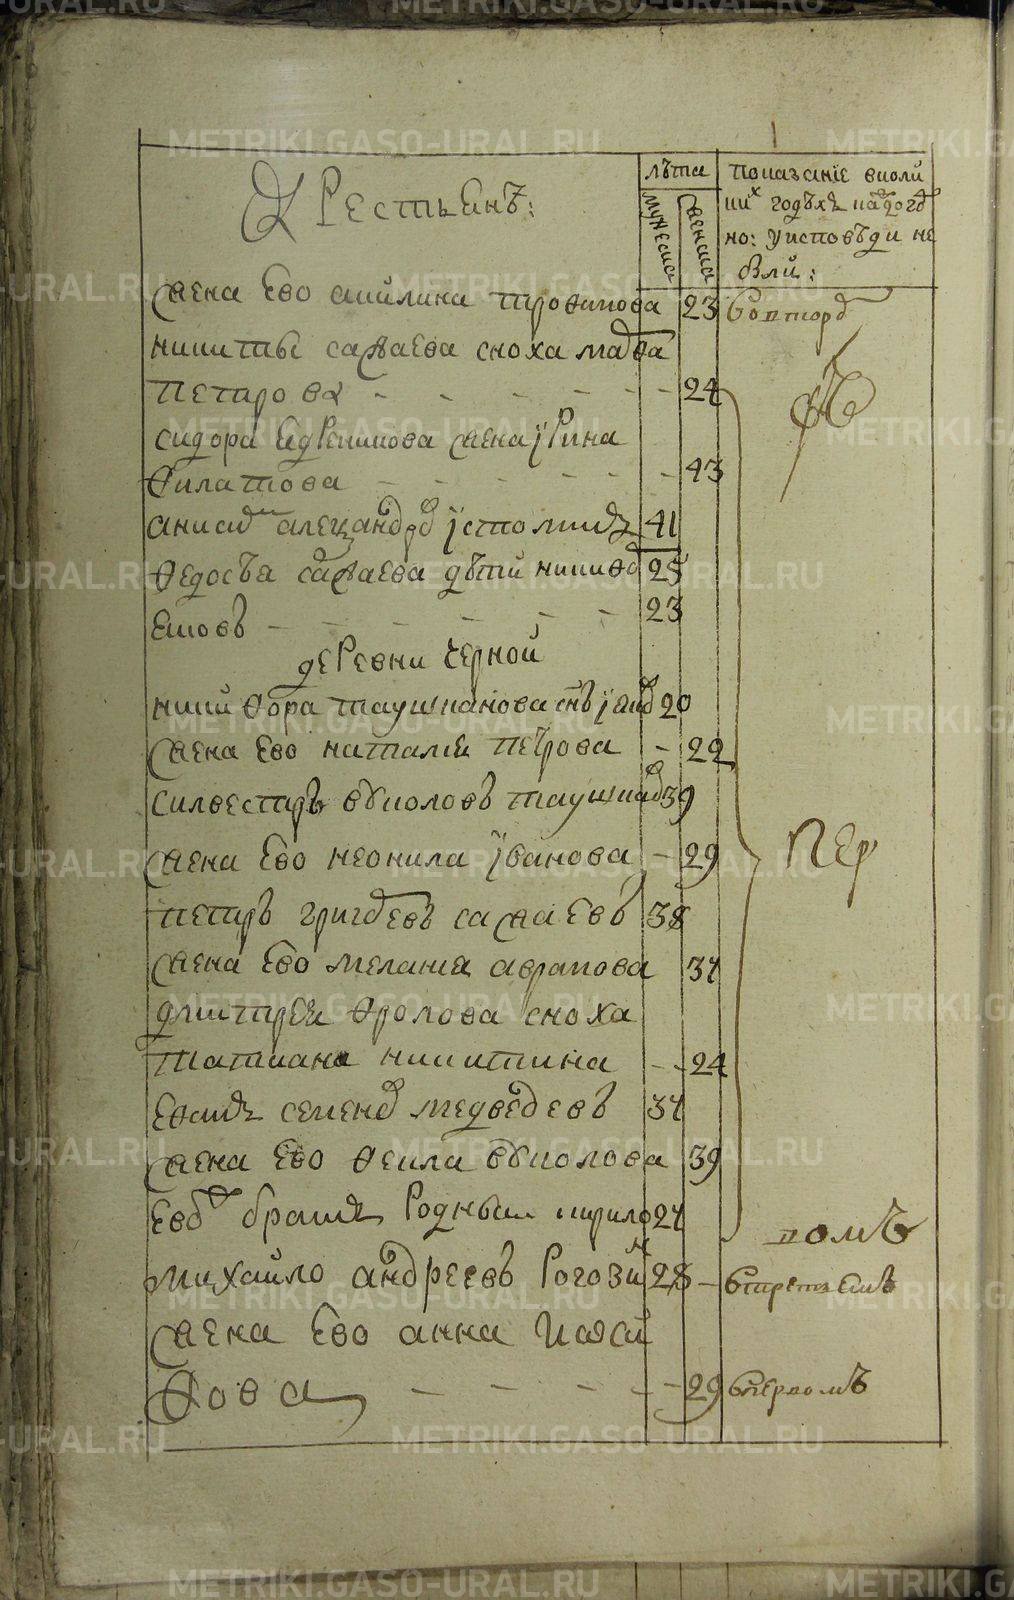 Крестьянъ:
лѣта
мужеска
женска
Показание вколи
ких годѣхъ надого
но: уисповѣди не
были:
Жена Ево акилина трофимова 23 Вовторо
никиты сажаева сноха мавра
Петрова - - - - - - 24
сидора Ефремова жена ирина
Филатова - - - - - 43
анисим александров истоминъ 41
Федосѣа сажаева дѣти никифо 25
Еиовъ - - - - - - 23
деревни Черной
никифора таушканова снъ иван 20
Жена Ево наталия Петрова - 22
силвестръ вуколовъ таушкано 39
Жена Ево неонила иванова - 29
петръ григоревъ сажаевъ 38
Жена Ево мелания аврамова 34
дмитреи Фролова сноха
татиана никитина - - 24
Ефимъ семенов медведевъ 34
Жена Ево Фекла вуколова 39
Ево братъ родныи кирило 24
Пер
вомъ
михайло андреевъ рогозин 28 - Втретьемъ
Жена Ево анна иоси
Фова - - - - - 29 Впервомъ
METRIKI.GASO-URAL.RU